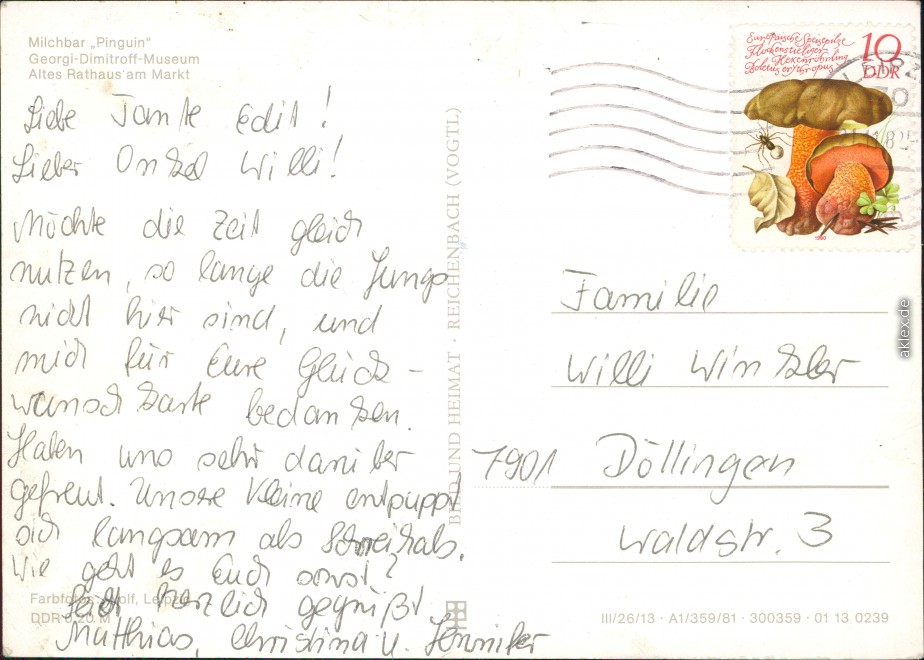 Milchbar „Pinguin"
Georgi-Dimitroff-Museum
Altes Rathaus am Markt
Liebe Tante Edit!
Lieber Onkel Willi!
Möchte die Zeit gleich
nutzen, so lange die Jungs
nicht hier sind, und
mich für Eure Glück-
wunschkarte bedanken.
Haben uns sehr darüber
gefreut. Unsere Kleine entpuppt
sich langsam als Schreihals.
Wie geht es Euch sonst?
Seid herzlich gegrüßt
Matthias, Christina u. Jennifer
Farbfoto: Wolf, Leipzig
DDR 0,20 M
BILD UND HEIMAT · REICHENBACH (VOGTL)
Europäische Speisepilze
Flockenstieliger
Hexenröhrling
Boletus erythropus
10
DDR
1980
Familie
Willi Winkler
7901 Döllingen
Waldstr. 3
III/26/13 · A1/359/81 · 300359 · 01 13 0239
aklex.de